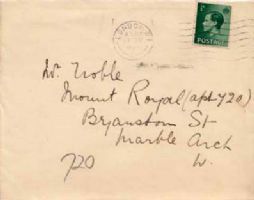 LONDON W.1
POSTAGE
Mr. Noble
Mount Royal (apt 720)
Bryanston St
Marble Arch
W.
720